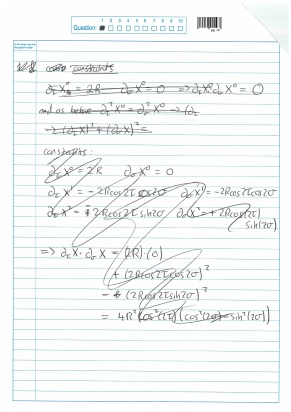 1 2 3 4 5 6 7 8 9 10
Question:
constraints
∂_τ X⁰ = 2R   ∂_σ X⁰ = 0   => ∂_τ X⁰ ∂_σ X⁰ = 0
and as before ∂_τ² X⁰ = ∂_σ² X⁰ → (∂_τ
- 2(∂_τ X)² + (∂_σ X)² =
constraints:
∂_τ X⁰ = 2R   ∂_σ X⁰ = 0
∂_τ X¹ = -2Rcos2τ cos2σ   ∂_σ X¹ = -2Rcos2τcos2σ
∂_τ X² = 2Rcos2τ sin2σ   ∂_σ X² = +2Rcos(2τ)
sin(2σ)
=> ∂_τ X · ∂_σ X = (2R)·(0)
+ (2Rcos2τcos2σ)²
- (2Rcos2τsin2σ)²
= 4R² (cos²(2τ)) (cos²(2σ) - sin²(2σ))